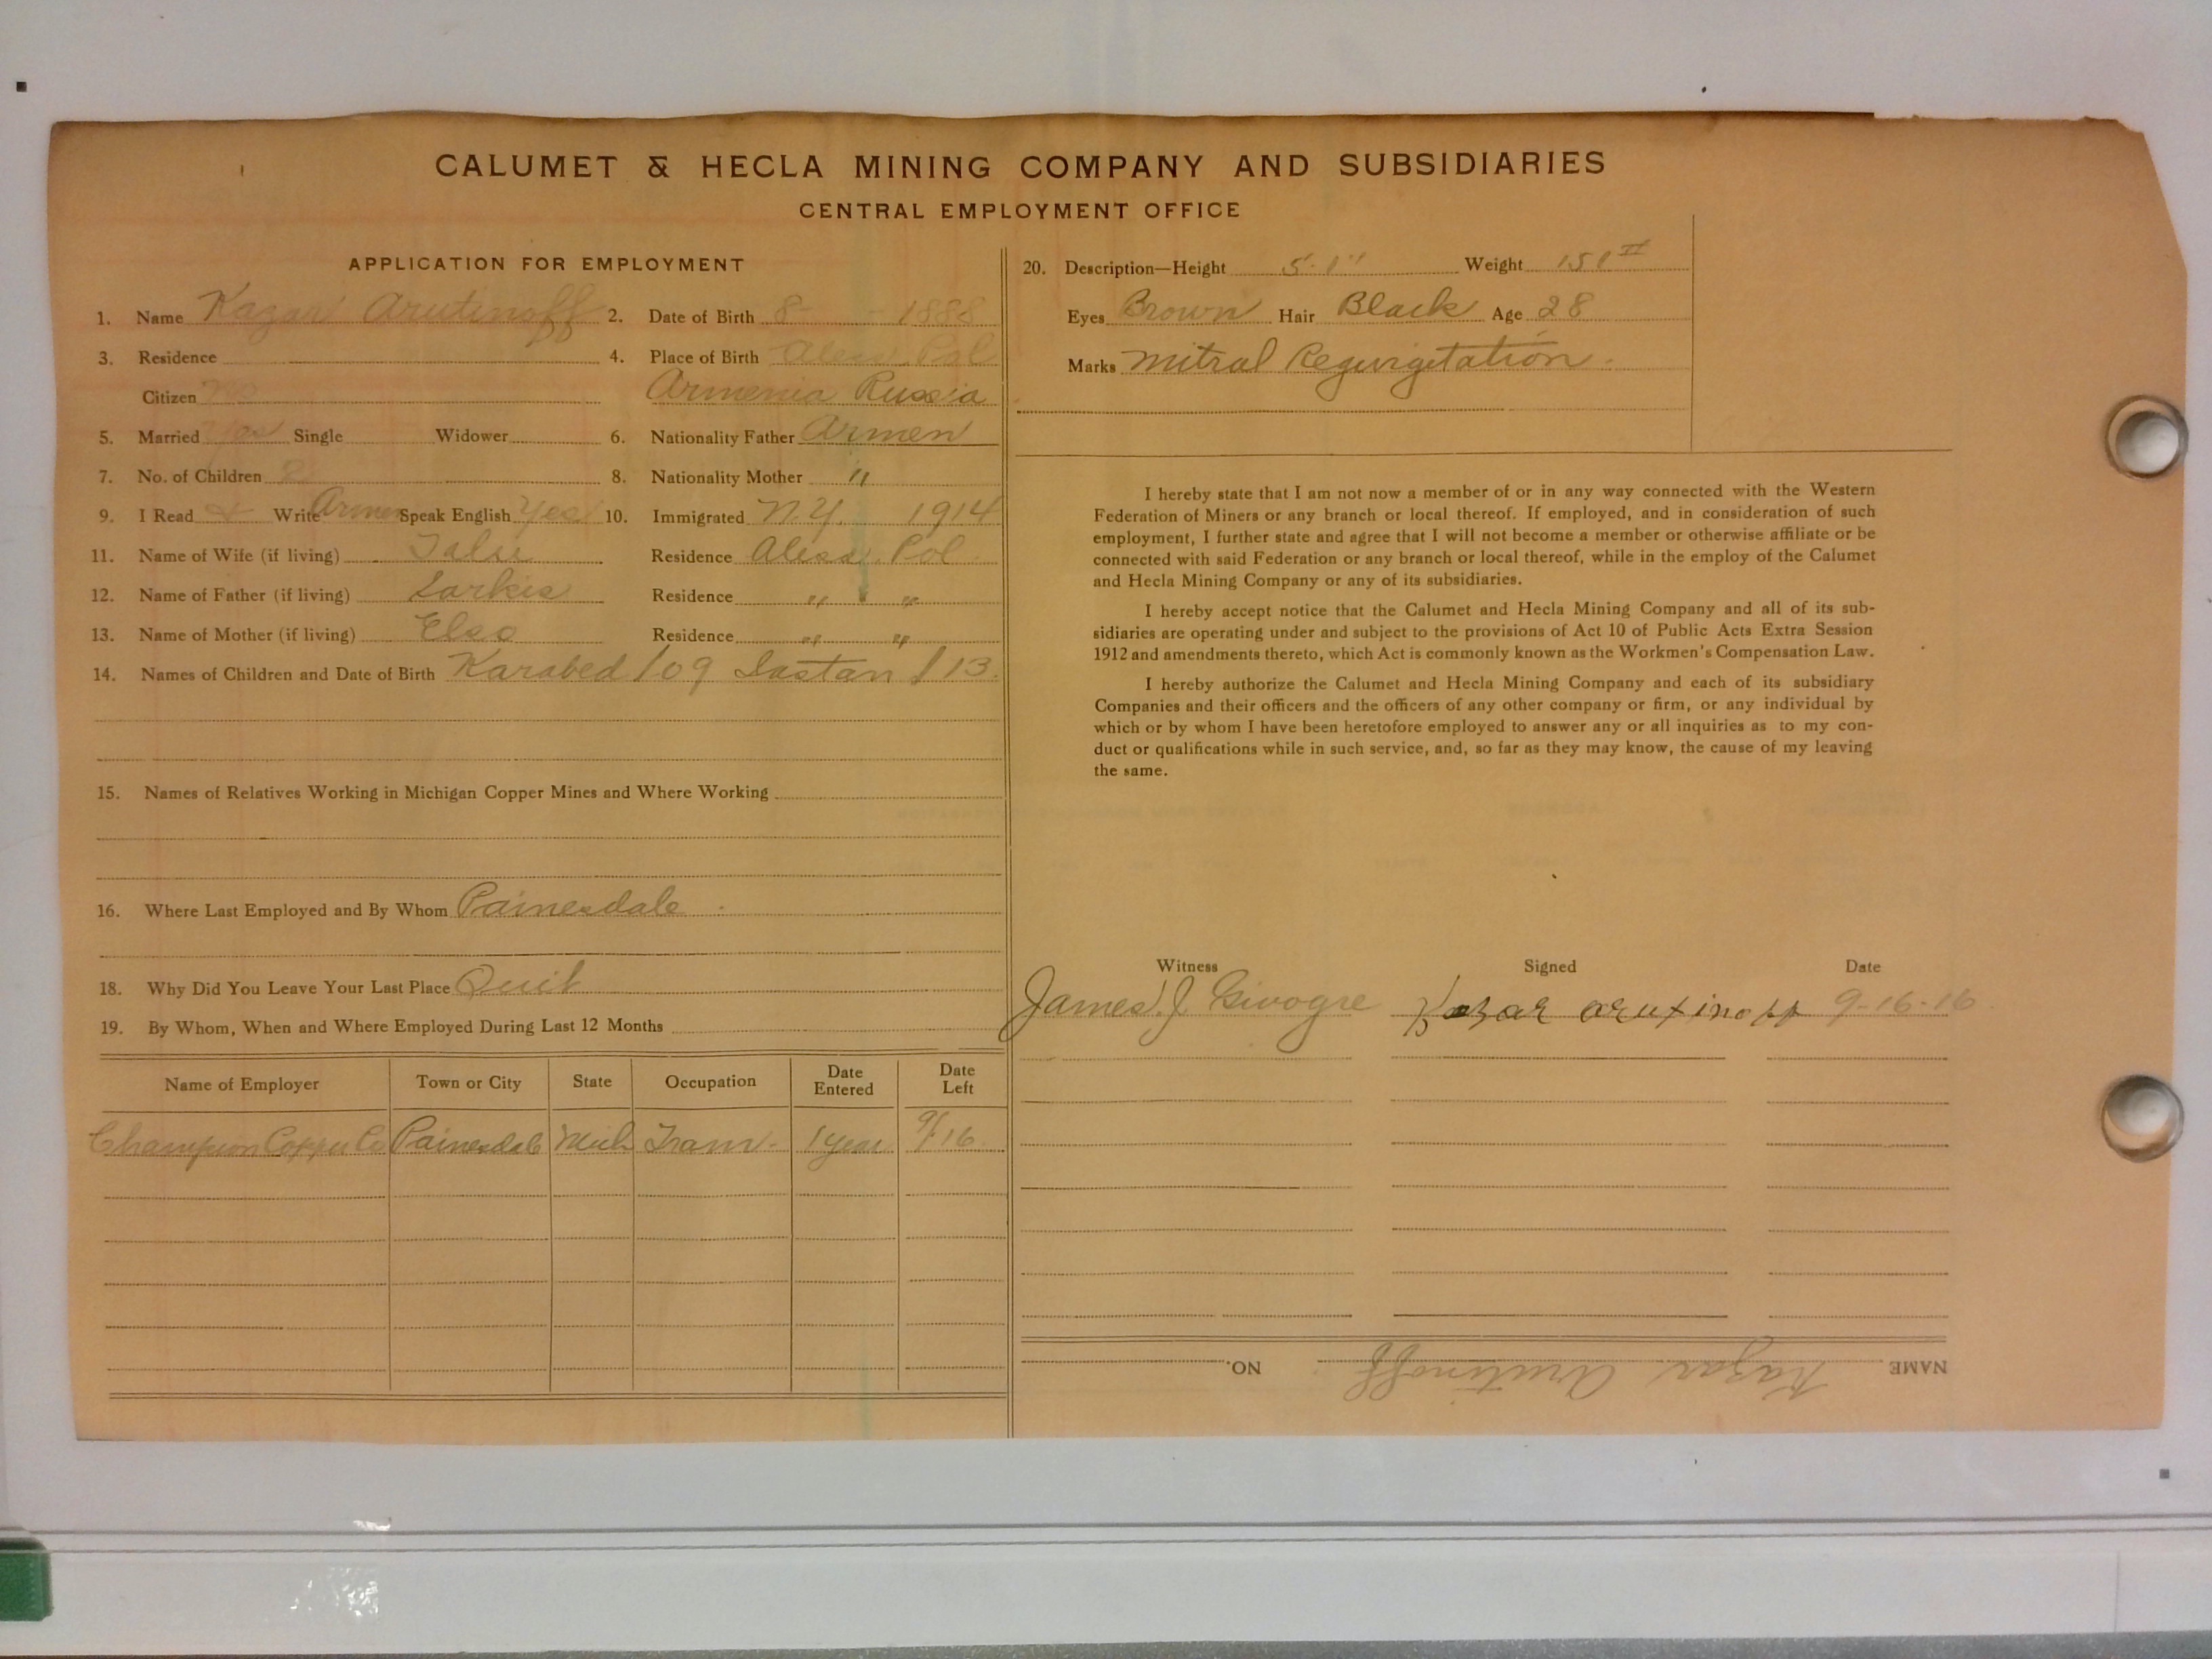 CALUMET & HECLA MINING COMPANY AND SUBSIDIARIES
CENTRAL EMPLOYMENT OFFICE
APPLICATION FOR EMPLOYMENT
1. Name Kazar Arutinoff 2. Date of Birth 8- - 1888
3. Residence 4. Place of Birth Alexa. Pol
Citizen No Armenia Russia
5. Married Yes Single Widower 6. Nationality Father Armen
7. No. of Children 2 8. Nationality Mother "
9. I Read & Write Armen Speak English Yes 10. Immigrated N.Y. 1914
11. Name of Wife (if living) Residence Alexa. Pol
12. Name of Father (if living) Sarkis Residence " "
13. Name of Mother (if living) Elso Residence " "
14. Names of Children and Date of Birth Karabed /09 /13.
15. Names of Relatives Working in Michigan Copper Mines and Where Working
16. Where Last Employed and By Whom Painesdale
18. Why Did You Leave Your Last Place Quit
19. By Whom, When and Where Employed During Last 12 Months
Name of Employer Town or City State Occupation Date Entered Date Left
Champion Copper Co Painesdale Mich Tram. 1 year 9/16
20. Description—Height 5' 1" Weight 151 #
Eyes Brown Hair Black Age 28
Marks Mitral Regurgetation.
I hereby state that I am not now a member of or in any way connected with the Western
Federation of Miners or any branch or local thereof. If employed, and in consideration of such
employment, I further state and agree that I will not become a member or otherwise affiliate or be
connected with said Federation or any branch or local thereof, while in the employ of the Calumet
and Hecla Mining Company or any of its subsidiaries.
I hereby accept notice that the Calumet and Hecla Mining Company and all of its sub-
sidiaries are operating under and subject to the provisions of Act 10 of Public Acts Extra Session
1912 and amendments thereto, which Act is commonly known as the Workmen's Compensation Law.
I hereby authorize the Calumet and Hecla Mining Company and each of its subsidiary
Companies and their officers and the officers of any other company or firm, or any individual by
which or by whom I have been heretofore employed to answer any or all inquiries as to my con-
duct or qualifications while in such service, and, so far as they may know, the cause of my leaving
the same.
Witness Signed Date
James J. Kazar arutinoff 9-16-16
NAME Kazar Arutinoff NO.